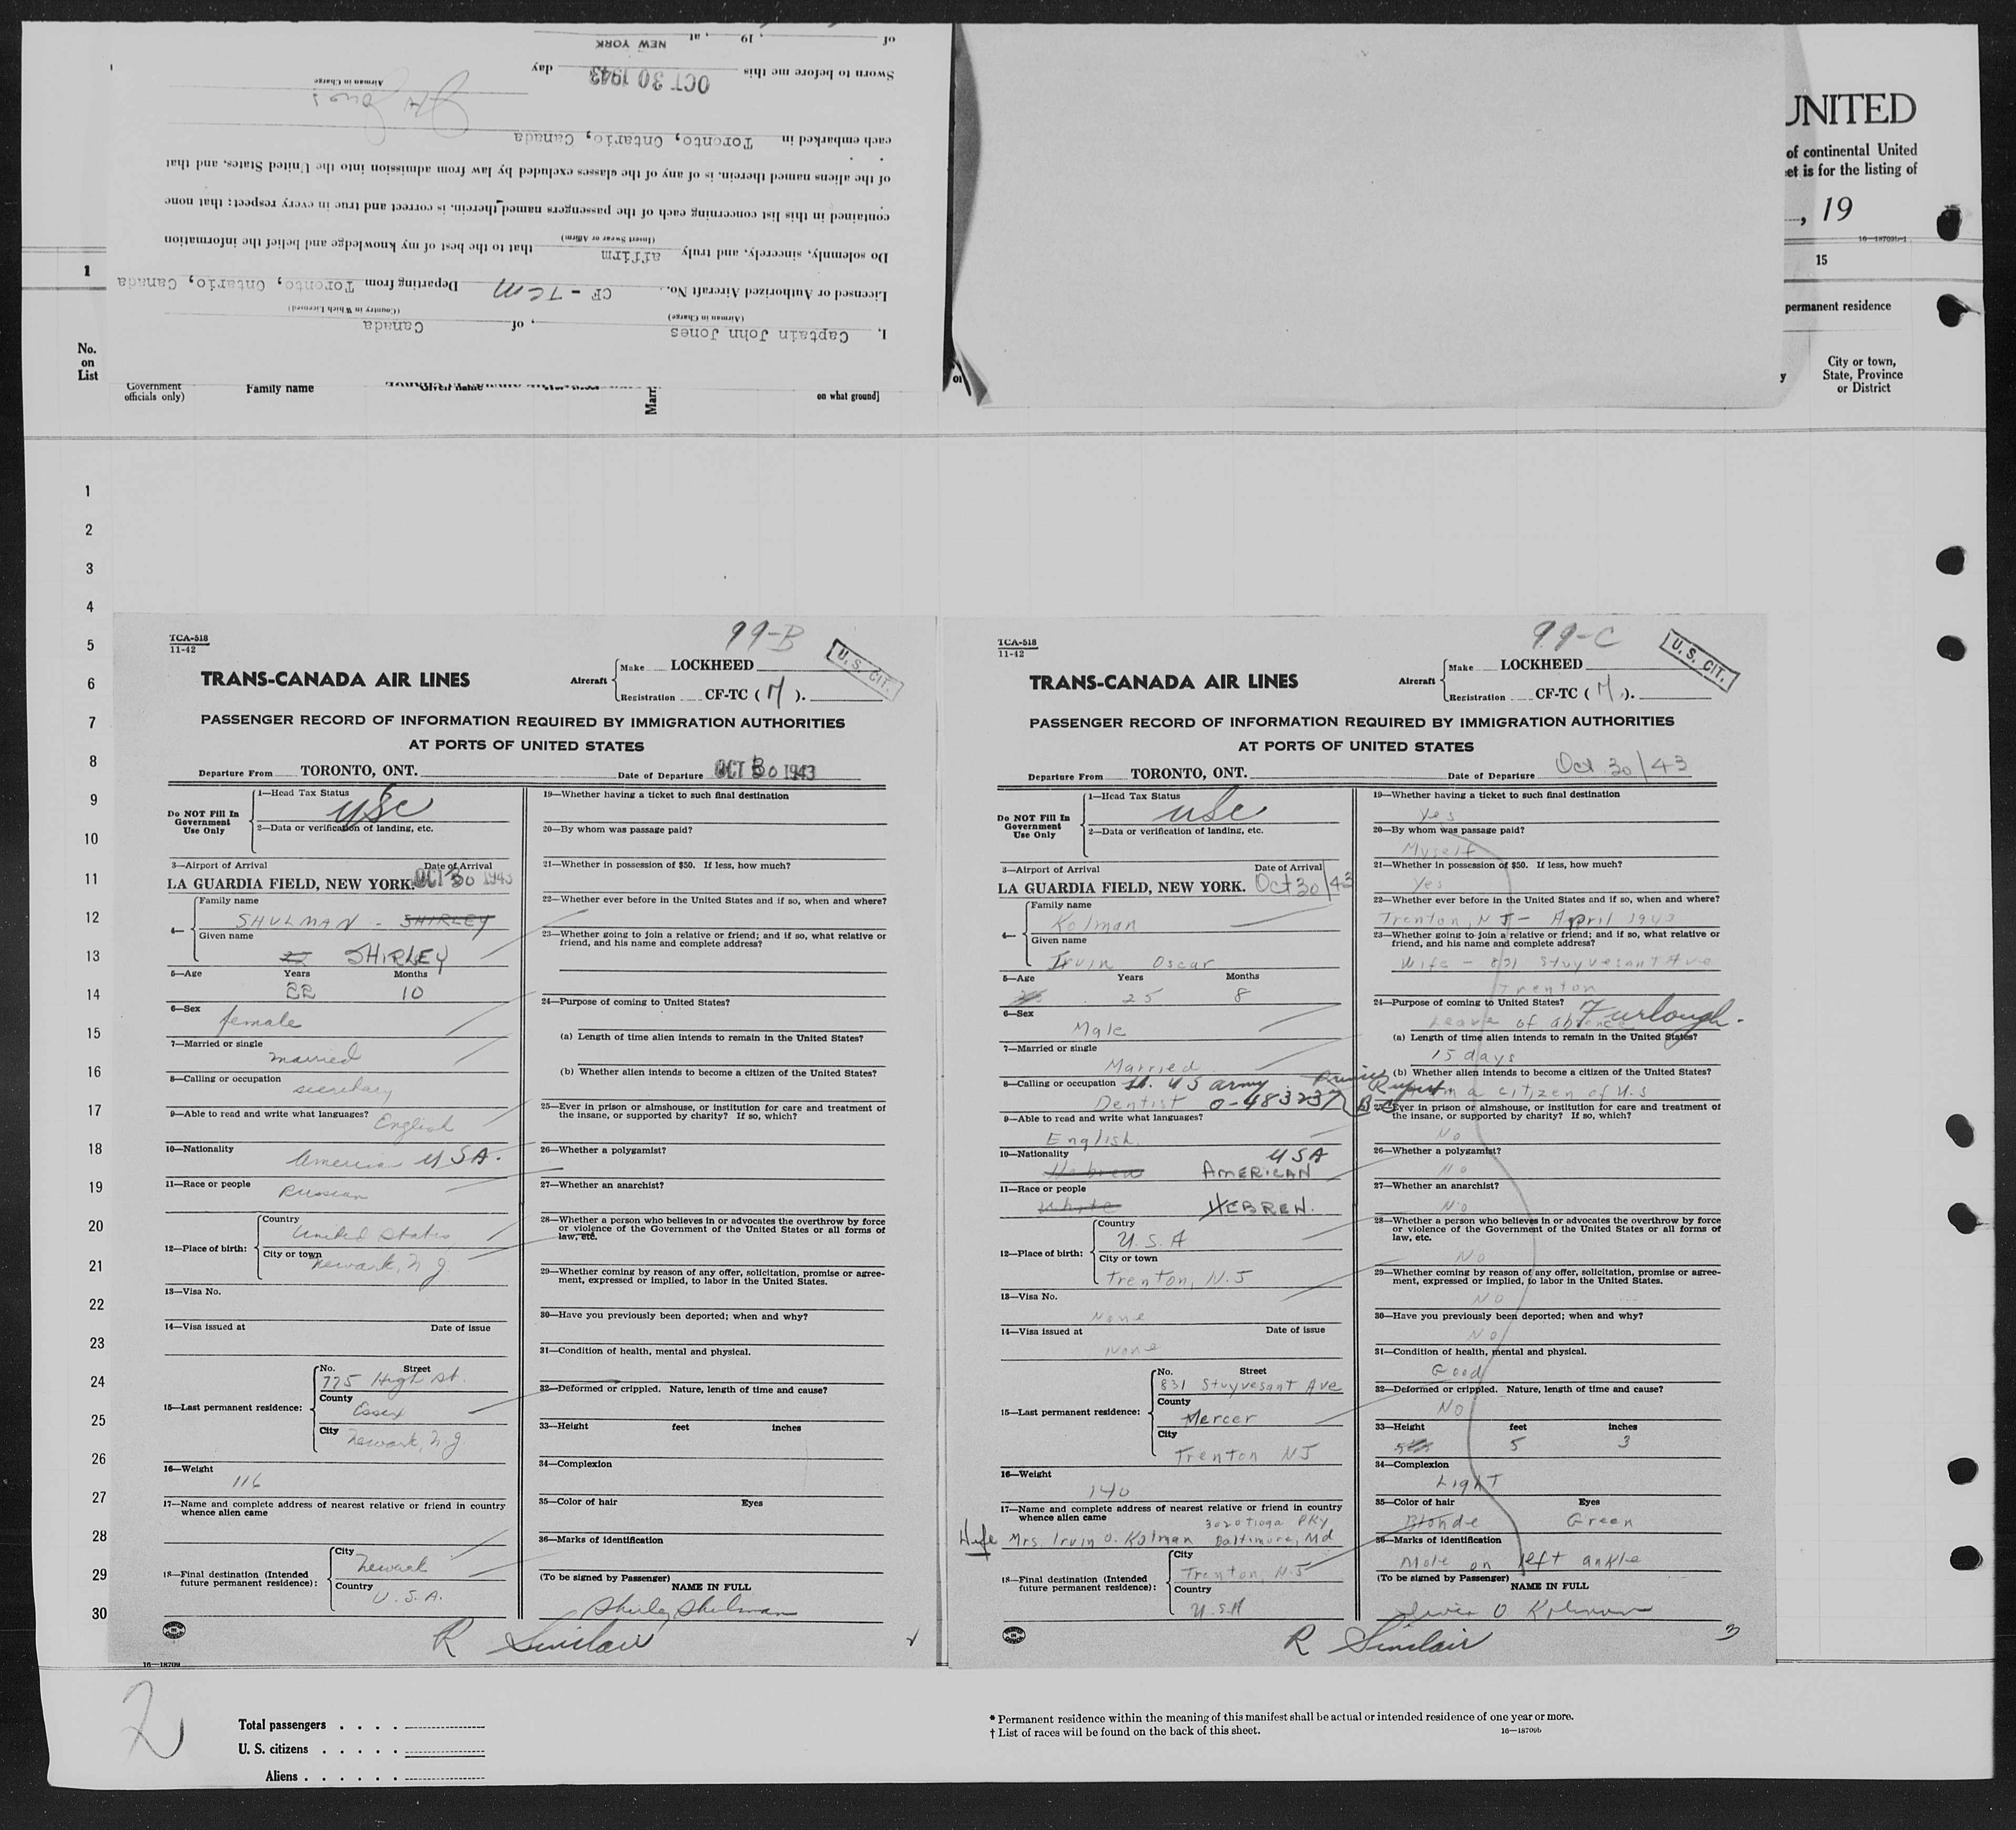 I, Captain John Jones, of Canada
(Airman in Charge) (Country in Which Licensed)
Licensed or Authorized Aircraft No. CF - TCM Departing from Toronto, Ontario, Canada
Do solemnly, sincerely, and truly affirm that to the best of my knowledge and belief the information
(Insert Swear or Affirm)
contained in this list concerning each of the passengers named therein, is correct and true in every respect; that none
of the aliens named therein, is of any of the classes excluded by law from admission into the United States, and that
each embarked in Toronto, Ontario, Canada
Airman in Charge
Sworn to before me this OCT 30 1943 day
of , 19 , at NEW YORK
UNITED
of continental United
et is for the listing of
, 19
16—18709b-1
1
15
permanent residence
No.
on
List
Government
officials only)
Family name
Given name
Marr
on what ground]
y
City or town,
State, Province
or District
1
2
3
4
5
6
7
8
9
10
11
12
13
14
15
16
17
18
19
20
21
22
23
24
25
26
27
28
29
30
TCA-518
11-42
99-B
U. S. CIT.
TRANS-CANADA AIR LINES
Aircraft
Make LOCKHEED
Registration CF-TC ( M ).
PASSENGER RECORD OF INFORMATION REQUIRED BY IMMIGRATION AUTHORITIES
AT PORTS OF UNITED STATES
Departure From TORONTO, ONT. Date of Departure OCT 30 1943
Do NOT Fill In
Government
Use Only
1—Head Tax Status
USC
2—Data or verification of landing, etc.
3—Airport of Arrival Date of Arrival
LA GUARDIA FIELD, NEW YORK. OCT 30 1943
4—
Family name
SHULMAN - SHIRLEY
Given name
22 SHIRLEY
5—Age Years Months
22 10
6—Sex
female
7—Married or single
married
8—Calling or occupation
secretary
9—Able to read and write what languages?
English
10—Nationality
American USA.
11—Race or people
Russian
12—Place of birth:
Country
United States
City or town
Newark, N.J.
13—Visa No.
14—Visa issued at Date of issue
15—Last permanent residence:
No. Street
775 High St.
County
Essex
City
Newark, N.J
16—Weight
116
17—Name and complete address of nearest relative or friend in country
whence alien came
18—Final destination (Intended
future permanent residence):
City
Newark
Country
U.S.A.
19—Whether having a ticket to such final destination
20—By whom was passage paid?
21—Whether in possession of $50. If less, how much?
22—Whether ever before in the United States and if so, when and where?
23—Whether going to join a relative or friend; and if so, what relative or
friend, and his name and complete address?
24—Purpose of coming to United States?
(a) Length of time alien intends to remain in the United States?
(b) Whether alien intends to become a citizen of the United States?
25—Ever in prison or almshouse, or institution for care and treatment of
the insane, or supported by charity? If so, which?
26—Whether a polygamist?
27—Whether an anarchist?
28—Whether a person who believes in or advocates the overthrow by force
or violence of the Government of the United States or all forms of
law, etc.
29—Whether coming by reason of any offer, solicitation, promise or agree-
ment, expressed or implied, to labor in the United States.
30—Have you previously been deported; when and why?
31—Condition of health, mental and physical.
32—Deformed or crippled. Nature, length of time and cause?
33—Height feet inches
34—Complexion
35—Color of hair Eyes
36—Marks of identification
(To be signed by Passenger)
NAME IN FULL
Shirley Shulman
R Sinclair
2
16—18709
TCA-518
11-42
99-C
U. S. CIT.
TRANS-CANADA AIR LINES
Aircraft
Make LOCKHEED
Registration CF-TC ( M ).
PASSENGER RECORD OF INFORMATION REQUIRED BY IMMIGRATION AUTHORITIES
AT PORTS OF UNITED STATES
Departure From TORONTO, ONT. Date of Departure Oct 30/43
Do NOT Fill In
Government
Use Only
1—Head Tax Status
USC
2—Data or verification of landing, etc.
3—Airport of Arrival Date of Arrival
LA GUARDIA FIELD, NEW YORK. Oct 30/43
4—
Family name
Kolman
Given name
Irvin Oscar
5—Age Years Months
25 8
6—Sex
Male
7—Married or single
Married
8—Calling or occupation Lt. US army
Dentist O-483237
9—Able to read and write what languages?
English
10—Nationality USA
Hebrew AMERICAN
11—Race or people
White HEBREW.
12—Place of birth:
Country
U.S.A
City or town
Trenton, N.J
13—Visa No.
None
14—Visa issued at Date of issue
None
15—Last permanent residence:
No. Street
831 Stuyvesant Ave
County
Mercer
City
Trenton NJ
16—Weight
140
17—Name and complete address of nearest relative or friend in country
whence alien came 3020 Tioga PKy
Wife Mrs. Irvin O. Kolman Baltimore, Md
18—Final destination (Intended
future permanent residence):
City
Trenton, N.J
Country
U.S.A
19—Whether having a ticket to such final destination
Yes
20—By whom was passage paid?
Myself
21—Whether in possession of $50. If less, how much?
Yes
22—Whether ever before in the United States and if so, when and where?
Trenton, NJ - April 1943
23—Whether going to join a relative or friend; and if so, what relative or
friend, and his name and complete address?
Wife - 831 Stuyvesant Ave
Trenton
24—Purpose of coming to United States? Furlough.
Leave of absence
(a) Length of time alien intends to remain in the United States?
15 days
(b) Whether alien intends to become a citizen of the United States?
am a citizen of U.S
25—Ever in prison or almshouse, or institution for care and treatment of
the insane, or supported by charity? If so, which?
No
26—Whether a polygamist?
No
27—Whether an anarchist?
No
28—Whether a person who believes in or advocates the overthrow by force
or violence of the Government of the United States or all forms of
law, etc.
No
29—Whether coming by reason of any offer, solicitation, promise or agree-
ment, expressed or implied, to labor in the United States.
No
30—Have you previously been deported; when and why?
No
31—Condition of health, mental and physical.
Good
32—Deformed or crippled. Nature, length of time and cause?
No
33—Height feet inches
5 3
34—Complexion
Light
35—Color of hair Eyes
Blonde Green
36—Marks of identification
Mole on left ankle
(To be signed by Passenger)
NAME IN FULL
Irvin O Kolman
R Sinclair
3
2
Total passengers
U. S. citizens
Aliens
* Permanent residence within the meaning of this manifest shall be actual or intended residence of one year or more.
† List of races will be found on the back of this sheet.
16—18709b